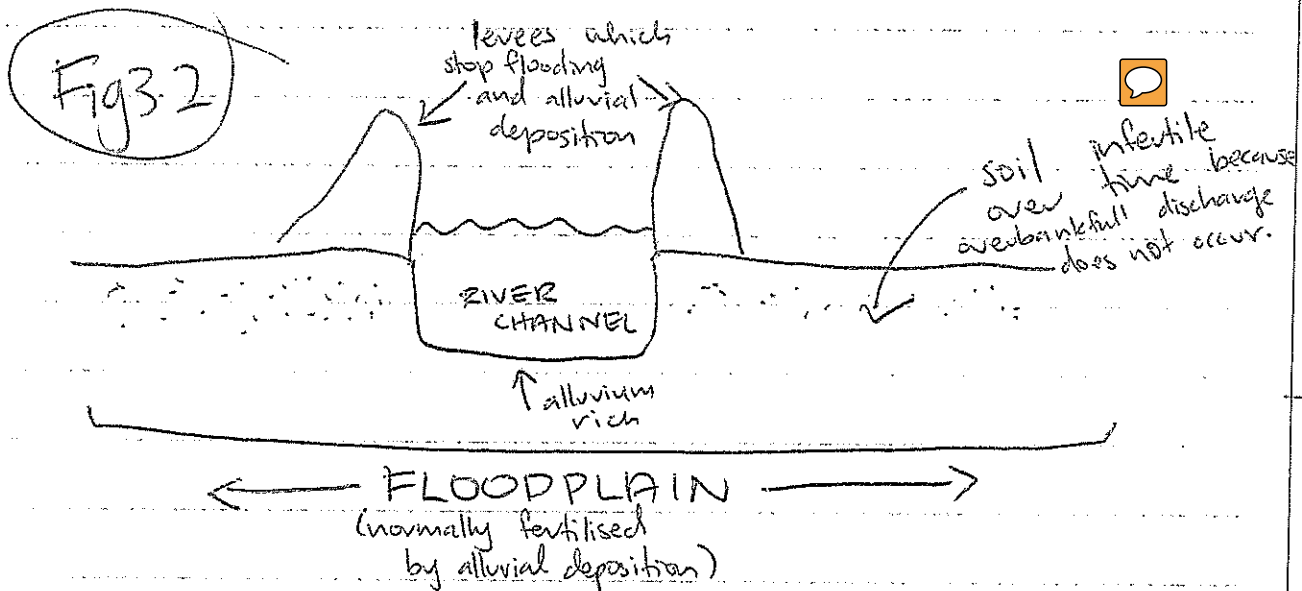 Fig 3.2
levees which
stop flooding
and alluvial
deposition
soil infertile
over time because
overbankfull discharge
does not occur.
RIVER
CHANNEL
alluvium
rich
FLOODPLAIN
(normally fertilised
by alluvial deposition)